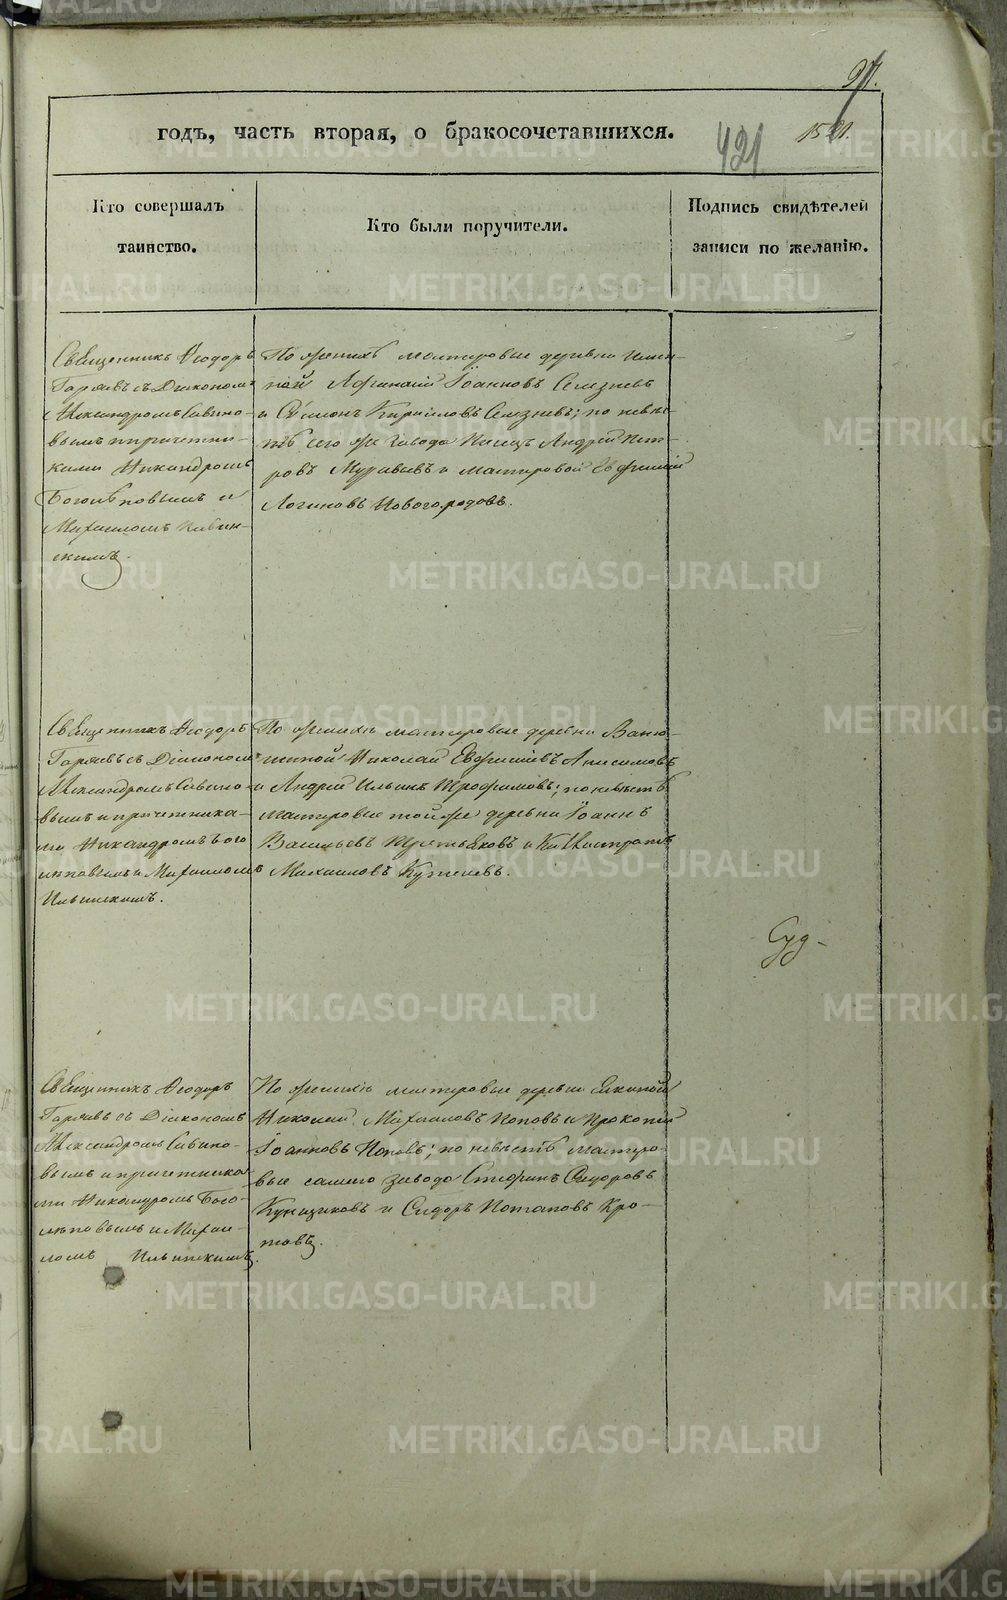 97.
годъ, часть вторая, о бракосочетавшихся.
421
Кто совершалъ
таинство.
Кто были поручители.
Подпись свидѣтелей
записи по желанію.
Священникъ Ѳеодоръ
съ Діакономъ
Александромъ Савино-
вымъ и причетни-
ками Никандромъ
Боголѣповымъ и
Михаиломъ Ильин-
скимъ.
По женихѣ мастеровые деревни
Афанасій Іоанновъ Селезневъ
и Симіонъ Кириловъ Селезневъ; по невѣ-
стѣ сего же завода Писецъ Андрей Пет-
ровъ Муравьевъ и мастеровой Евфимій
Логиновъ Новогородовъ.
Священникъ Ѳеодоръ
съ Діакономъ
Александромъ Савино-
вымъ и причетника-
ми Никандромъ Бого-
лѣповымъ и Михаиломъ
Ильинскимъ.
По женихѣ мастеровые деревни
Николай Евфиміевъ Анисимовъ
и Андрей Ильинъ Трофимовъ; по невѣстѣ
мастеровые той же деревни Іоаннъ
Васильевъ Третьяковъ и Каллистратъ
Михаиловъ
Суд-
Священникъ Ѳеодоръ
съ Діакономъ
Александромъ Савино-
вымъ и причетника-
ми Никандромъ Бого-
лѣповымъ и Михаи-
ломъ Ильинскимъ.
По женихѣ мастеровые деревни
Николай Михаиловъ Поповъ и Прокопій
Іоанновъ Поповъ; по невѣстѣ мастеро-
вые самаго завода Стефанъ Сидоровъ
и Сидоръ Потаповъ Кро-
товъ.
METRIKI.GASO-URAL.RU